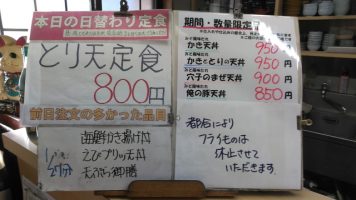 本日の日替わり定食
とり天定食
800円
前日注文の多かった品目
海鮮かき揚げ丼
えびプリッ天丼
天ぷら御膳
期間・数量限定
かき天丼 950円
かきととりの天丼 950円
穴子のまぜ天丼 900円
俺の豚天丼 850円
都合により
フライものは
休止させて
いただきます